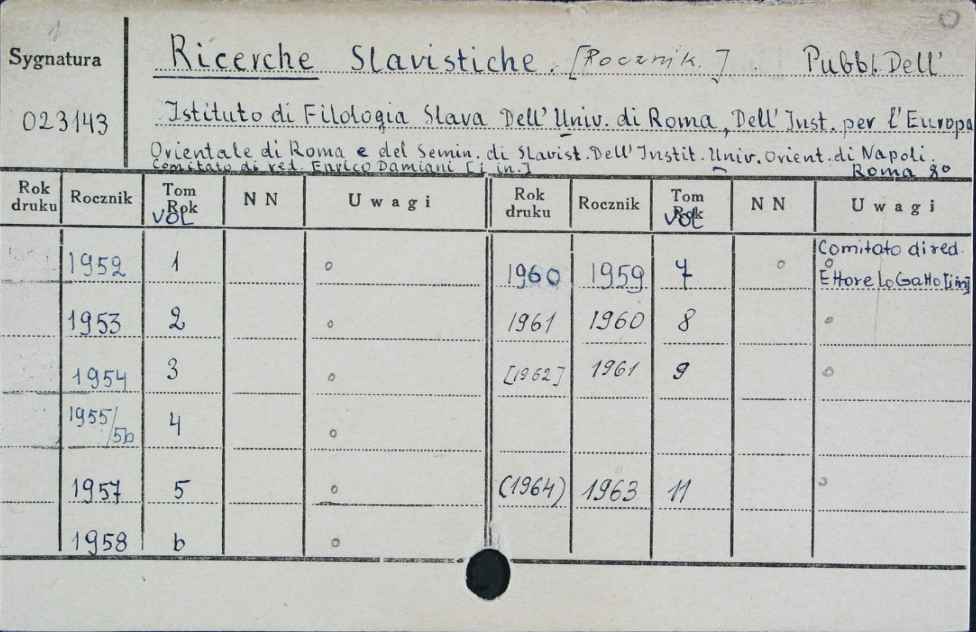 Sygnatura
023143
Ricerche Slavistiche. [Rocznik.]. Pubbl. Dell'
Istituto di Filologia Slava Dell' Univ. di Roma, Dell' Inst. per l'Europa
Orientale di Roma e del Semin. di Slavist. Dell' Instit. Univ. Orient. di Napoli.
Comitato di red. Enrico Damiani [i in.] Roma 8°
Rok druku Rocznik Tom Rok VOL NN Uwagi Rok druku Rocznik Tom Rok VOL NN Uwagi
1952 1 1960 1959 7 Comitato di red. Ettore Lo Gatto [i in]
1953 2 1961 1960 8
1954 3 [1962] 1961 9
1955/56 4
1957 5 (1964) 1963 11
1958 6